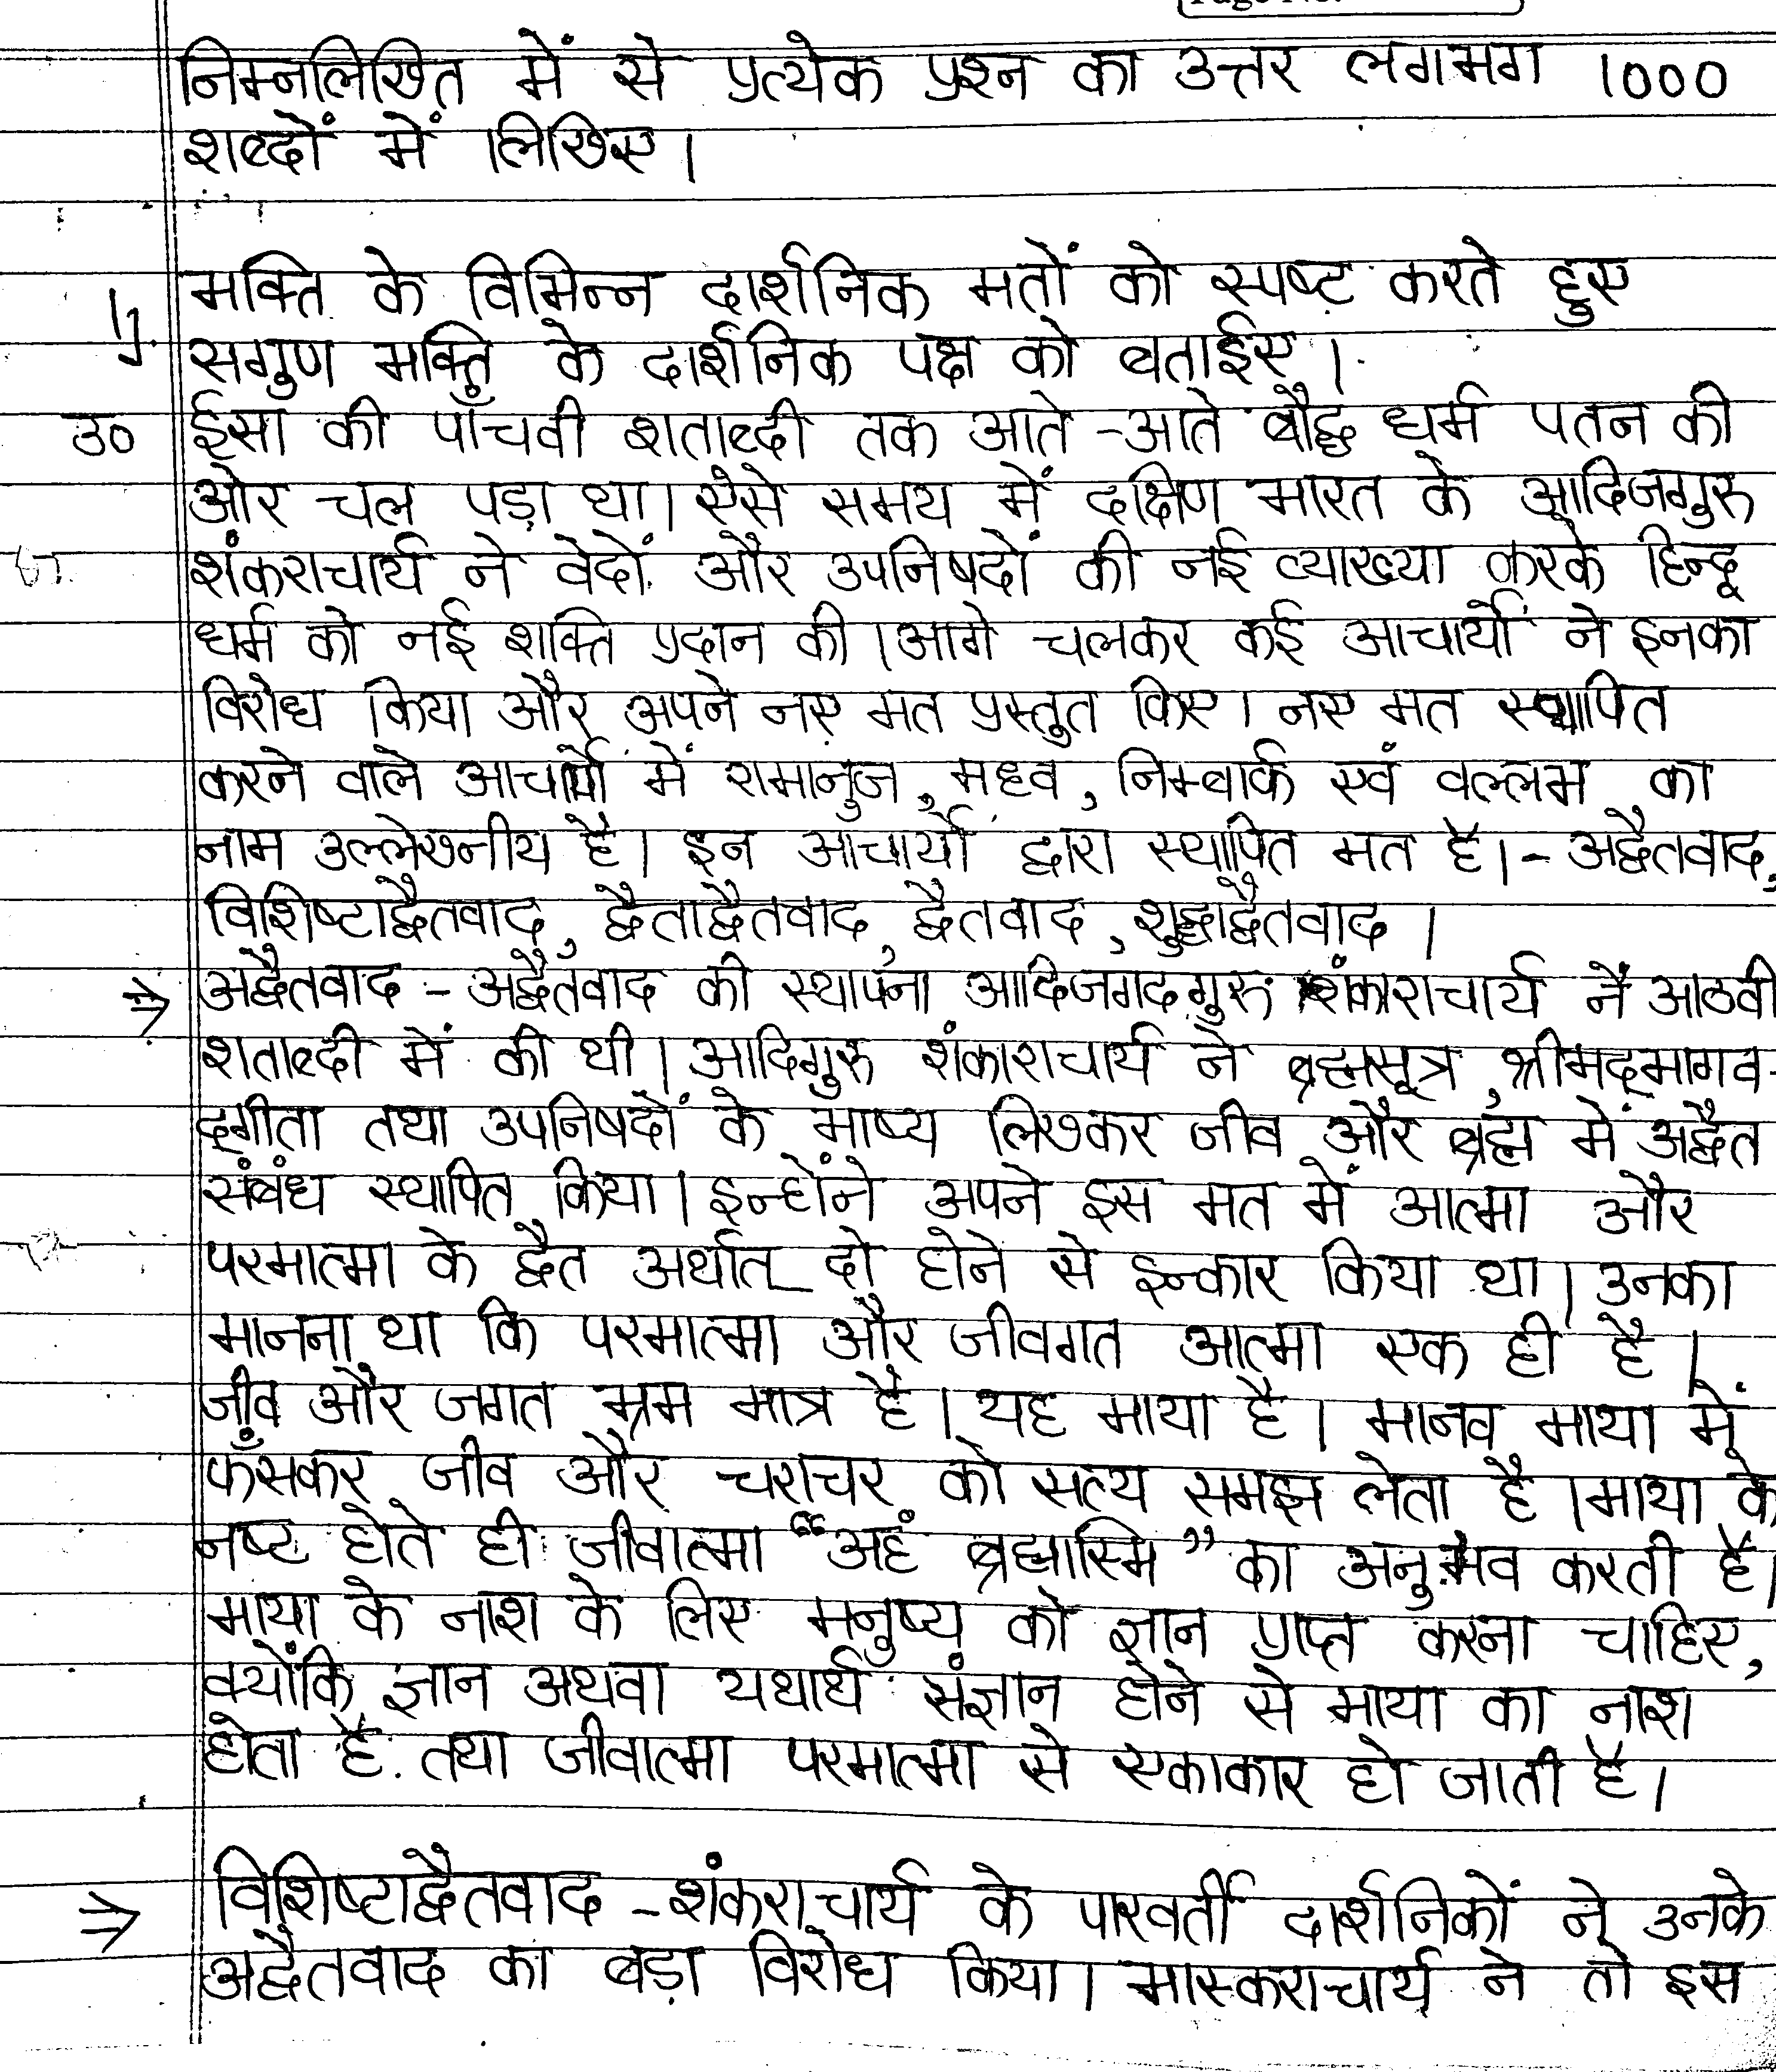 निम्नलिखित में से प्रत्येक प्रश्न का उत्तर लगभग 1000
शब्दों में लिखिए।
1). भक्ति के विभिन्न दार्शनिक मतों को स्पष्ट करते हुए
सगुण भक्ति के दार्शनिक पक्ष को बताईए।
उ० ईसा की पाँचवी शताब्दी तक आते-आते बौद्ध धर्म पतन की
ओर चल पड़ा था। ऐसे समय में दक्षिण भारत के आदिजगुरु
शंकराचार्य ने वेदों और उपनिषदों की नई व्याख्या करके हिन्दू
धर्म को नई शक्ति प्रदान की। आगे चलकर कई आचार्यों ने इनका
विरोध किया और अपने नए मत प्रस्तुत किए। नए मत स्थापित
करने वाले आचार्यो में रामानुज, मध्व, निम्बार्क एवं वल्लभ का
नाम उल्लेखनीय है। इन आचार्यों द्वारा स्थापित मत है।- अद्वैतवाद,
विशिष्टाद्वैतवाद, द्वैताद्वैतवाद, द्वैतवाद, शुद्धाद्वैतवाद।
⇒ अद्वैतवाद - अद्वैतवाद की स्थापना आदिजगदगुरु शंकाराचार्य नें आठवी
शताब्दी में की थी। आदिगुरु शंकाराचार्य ने ब्रह्मसूत्र, श्रीमद्भागव-
दगीता तथा उपनिषदों के भाष्य लिखकर जीव और ब्रह्म में अद्वैत
संबंध स्थापित किया। इन्होंने अपने इस मत में आत्मा और
परमात्मा के द्वैत अर्थात् दो होने से इन्कार किया था। उनका
मानना था कि परमात्मा और जीवगत आत्मा एक ही है।
जीव और जगत भ्रम मात्र है। यह माया है। मानव माया में
फँसकर जीव और चराचर को सत्य समझ लेता है। माया के
नष्ट होते ही जीवात्मा “अहं ब्रह्मास्मि” का अनुभव करती है।
माया के नाश के लिए मनुष्य को ज्ञान प्राप्त करना चाहिए,
क्योंकि ज्ञान अथवा यथार्थ संज्ञान होने से माया का नाश
होता है. तथा जीवात्मा परमात्मा से एकाकार हो जाती है।
⇒ विशिष्टाद्वैतवाद - शंकराचार्य के पारवर्ती दार्शनिकों ने उनके
अद्वैतवाद का बड़ा विरोध किया। भास्कराचार्य ने तो इस